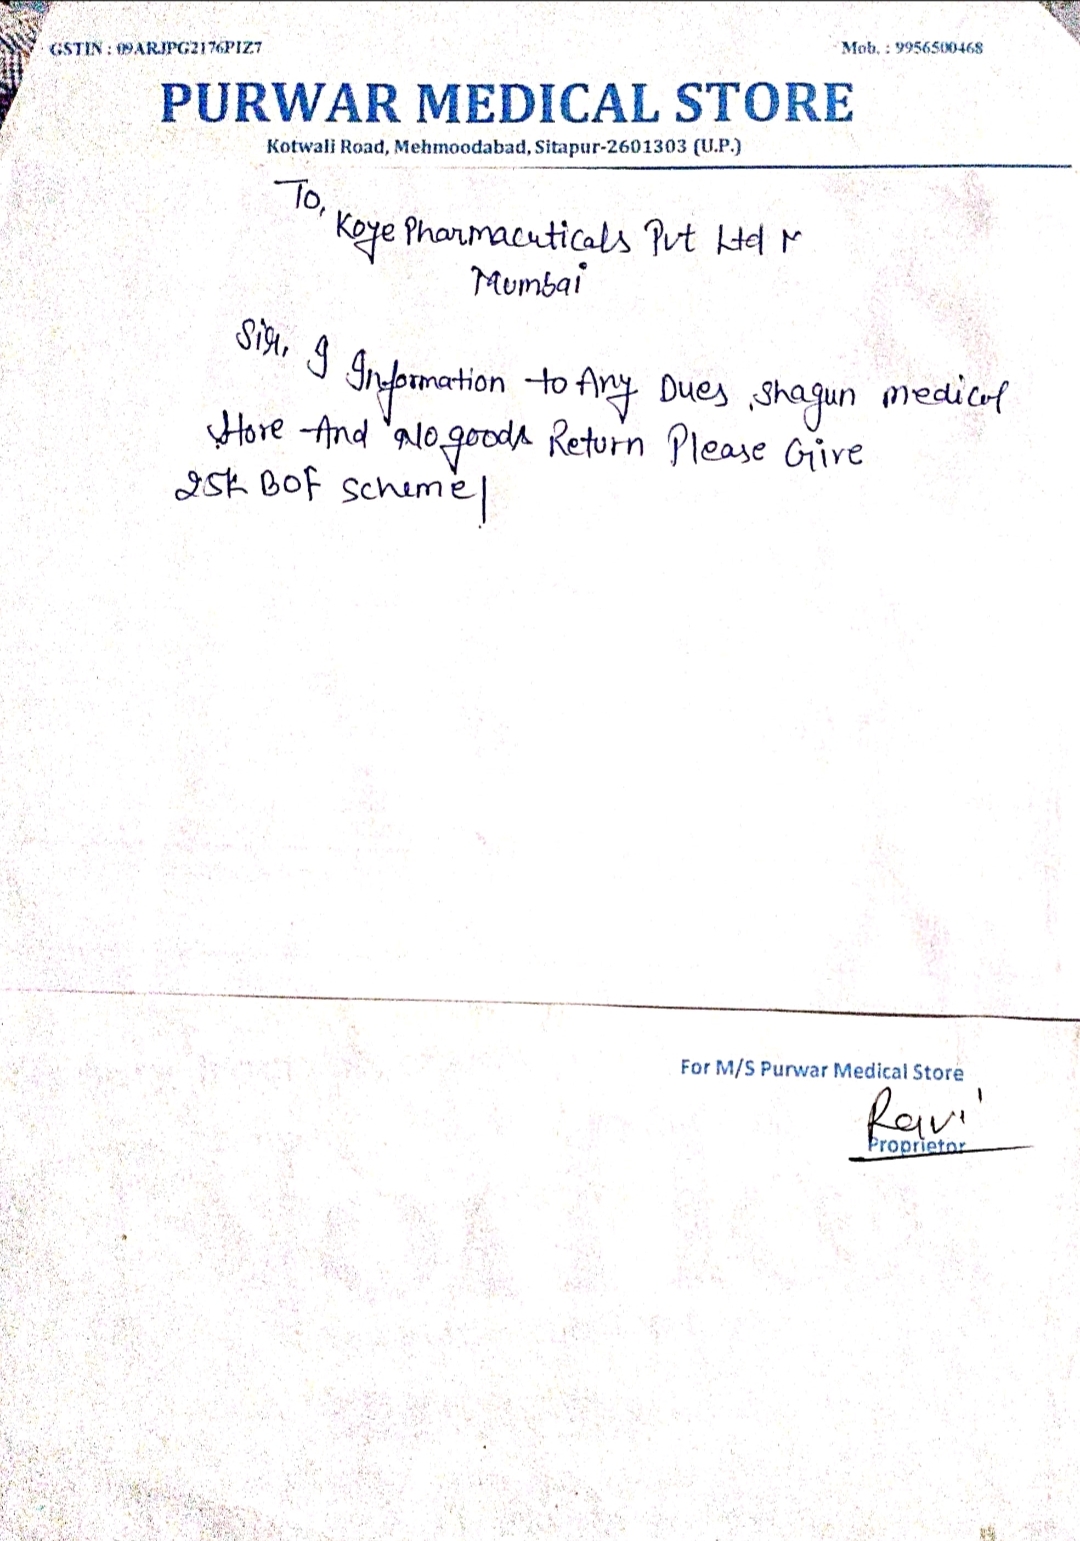 GSTIN : 09ARJPG2176P1Z7
Mob. : 9956500468
PURWAR MEDICAL STORE
Kotwali Road, Mehmoodabad, Sitapur-2601303 (U.P.)
To,
Koye Pharmaceuticals Pvt Ltd
Mumbai
Sir, I Information to Any Dues, Shagun medical
Store And No goods Return Please Give
25k BOF scheme|
For M/S Purwar Medical Store
Ravi
Proprietor